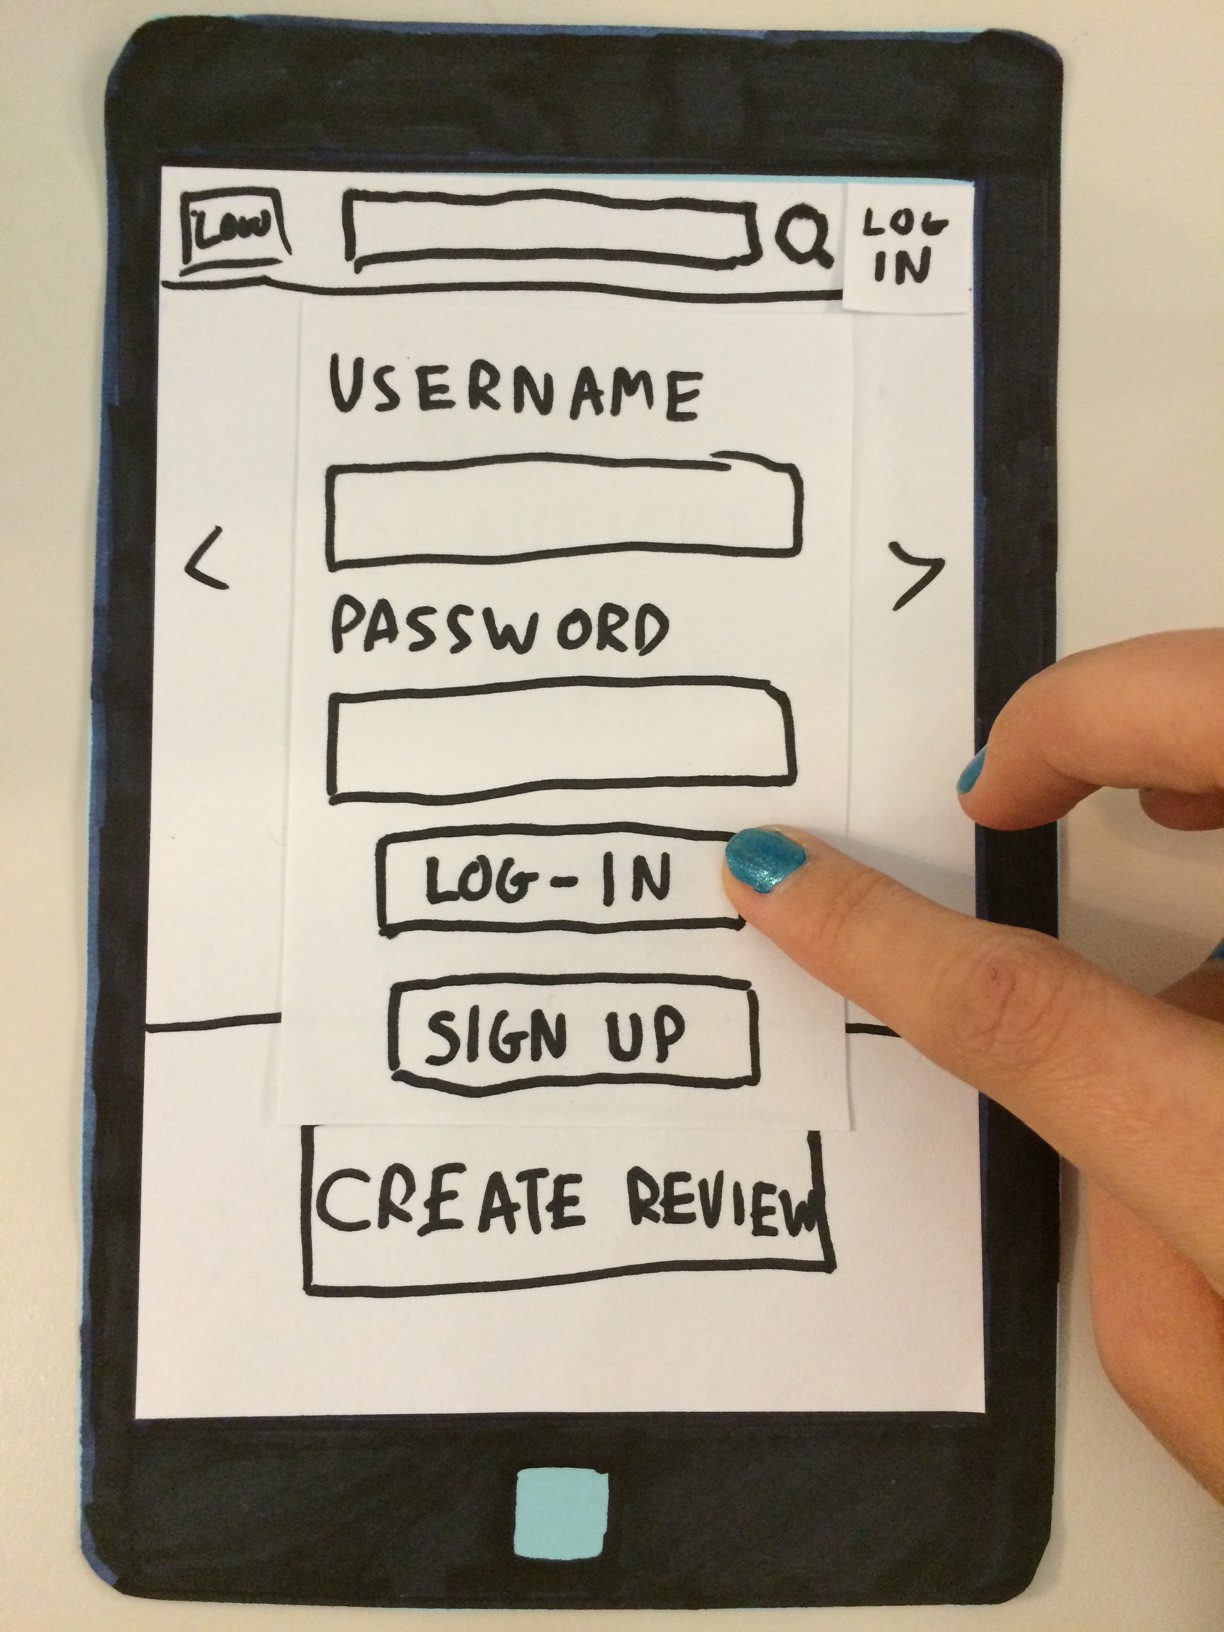 LOG
IN
USERNAME
PASSWORD
LOG-IN
SIGN UP
CREATE REVIEW